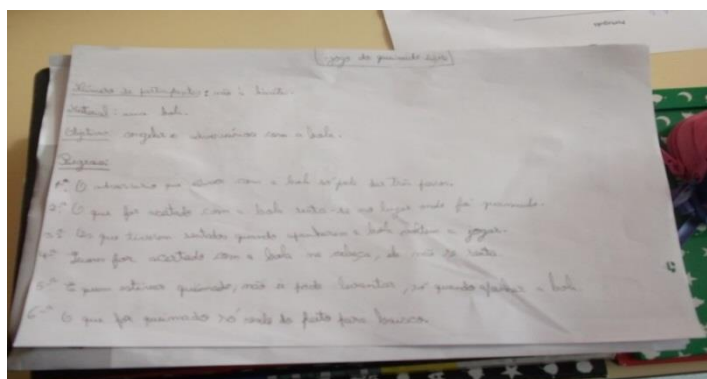 Jogo do queimado
Número de participantes: não é limite.
Material: uma bola.
Objetivo: o adversário com a bola.
Regras:
1º: O adversário que com a bola só pode dar três passos.
2º: O que for acertado com a bola senta-se no lugar onde foi queimado.
3º: Os que tiverem sentados quando apanharem a bola voltam a jogar.
4º: Quem for acertado com a bola na cabeça, ele não se senta.
5º: E quem estiver queimado, não pode levantar, só quando a bola.
6º: O que for queimado só do peito para baixo.